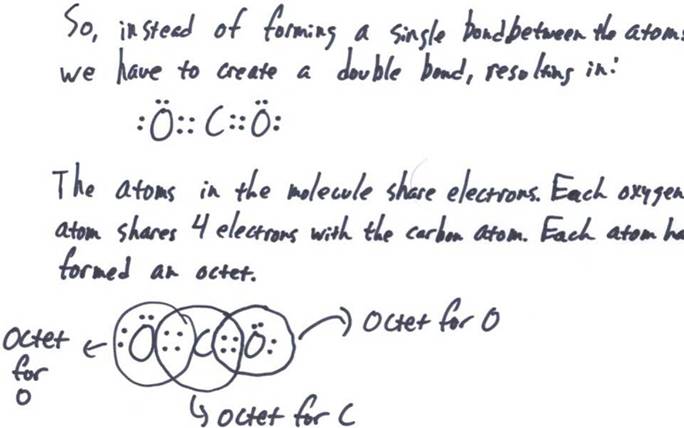 So, instead of forming a single bond between the atoms
we have to create a double bond, resulting in:
:Ö::C::Ö:
The atoms in the molecule share electrons. Each oxygen
atom shares 4 electrons with the carbon atom. Each atom ha
formed an octet.
:Ö::C::Ö:
Octet for O
Octet for O
Octet for C